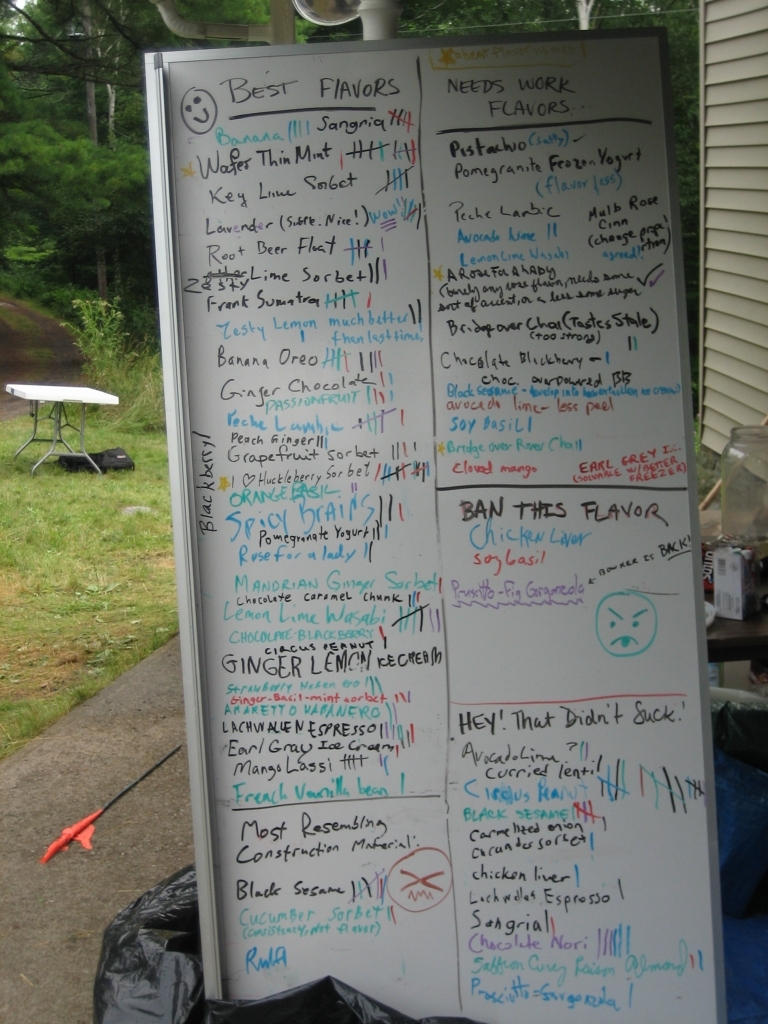 BEST FLAVORS
Banana Sangria
Wafer Thin Mint
Key Lime Sorbet
Lavender (Subtle. Nice!) Wow!
Root Beer Float
Zesty Lime Sorbet
Frank Sumatra
Zesty Lemon much better
than last time,
Banana Oreo
Ginger Chocolate
PASSIONFRUIT
Peche Lambic
Peach Ginger
Grapefruit Sorbet
Blackberry!
I ♡ Huckleberry Sorbet
ORANGE BASIL
SPICY BRAINS
Pomegranate Yogurt
Rose for a lady
MANDRIAN Ginger Sorbet
Chocolate caramel chunk
Lemon Lime Wasabi
CHOCOLATE-BLACKBERRY
CIRCUS PEANUT
GINGER LEMON ICE CREAM
Ginger-Basil-mint sorbet
AMARETTO HABANERO
LACHWALLEN ESPRESSO
Earl Gray Ice Cream
Mango Lassi
French Vanilla bean
Most Resembling
Construction Material:
Black Sesame
Cucumber Sorbet
(consistency, not flavor)
NEEDS WORK
FLAVORS...
Pistachio (salty)
Pomegranite Frozen Yogurt
(flavorless)
Peche Lambic
Mulb Rose
Cinn
(change proportion)
agreed!
Avocado Lime
Lemon Lime Wasabi
A Rose For A Lady
(barely any rose flavor, needs some
sort of accent, or a less some sugar
Bridge over Chai (Tastes Stale)
(too strong)
Chocolate Blackberry -
choc. overpowered BB
Black sesame - develop into
avocado lime - less peel
SOY BASIL
Bridge over River Chai
Cloved mango
EARL GREY I.C.
(SOLVABLE W/BETTER
FREEZER)
BAN THIS FLAVOR
Chicken Liver
soy basil
Prosciutto-Fig Gorgonzola ← BOWKER IS BACK!
HEY! That Didn't Suck!
Avocado Lime?
Curried lentil
CIRCUS PEANUT
BLACK SESAME
Carmelized onion
Cucumber sorbet
chicken liver
Lachwallas Espresso
Sangria
Chocolate Nori
Saffron Curry Raisin Almond
Prosciutto-Gorgonzola